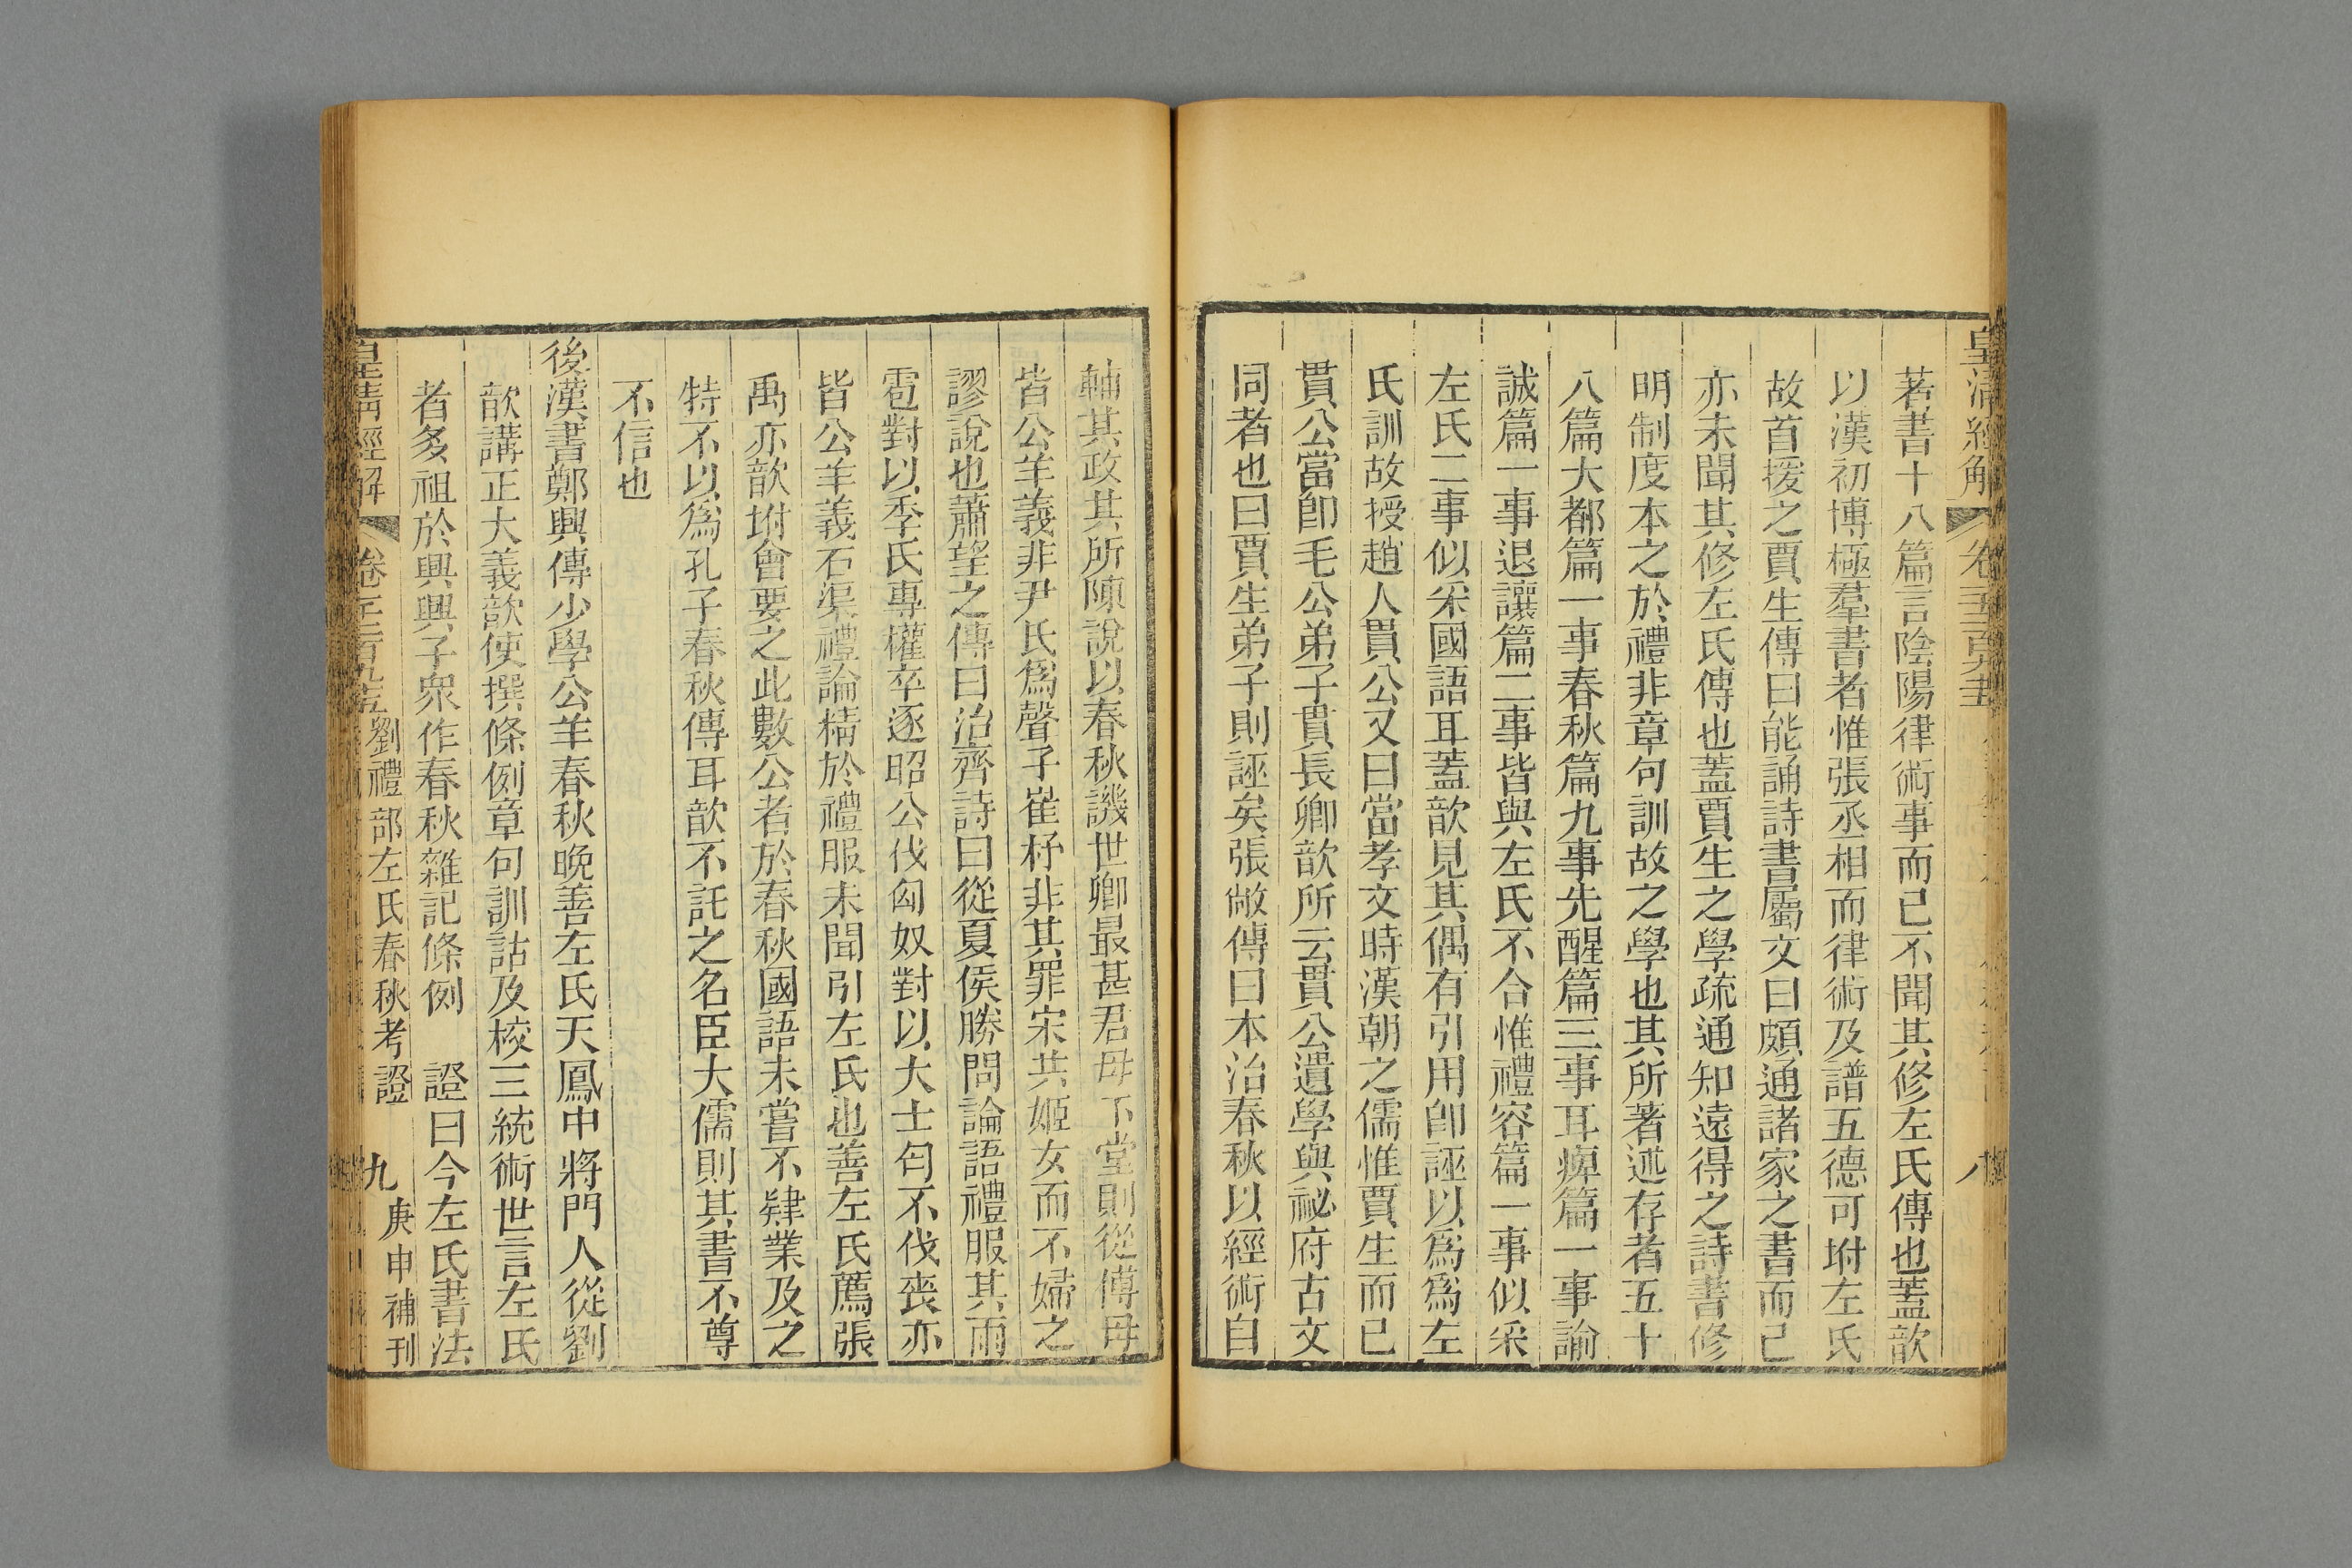 皇清經解
八
著書十八篇言陰陽律術事而已不聞其修左氏傳也蓋歆
以漢初博極羣書者惟張丞相而律術及譜五德可坿左氏
故首援之賈生傳曰能誦詩書屬文曰頗通諸家之書而已
亦未聞其修左氏傳也蓋賈生之學疏通知遠得之詩書修
明制度本之於禮非章句訓故之學也其所著述存者五十
八篇大都篇一事春秋篇九事先醒篇三事耳痺篇一事諭
誠篇一事退讓篇二事皆與左氏不合惟禮容篇一事似采
左氏二事似采國語耳蓋歆見其偶有引用卽誣以爲爲左
氏訓故授趙人貫公又曰當孝文時漢朝之儒惟賈生而已
貫公當卽毛公弟子貫長卿歆所云貫公遺學與祕府古文
同者也曰賈生弟子則誣矣張敞傳曰本治春秋以經術自
輔其政其所陳說以春秋譏世卿最甚君母下堂則從傅母
皆公羊義非尹氏爲聲子崔杼非其罪宋共姬女而不婦之
謬說也蕭望之傳曰治齊詩曰從夏侯勝問論語禮服其雨
雹對以季氏專權卒逐昭公伐匈奴對以大士匄不伐喪亦
皆公羊義石渠禮論精於禮服未聞引左氏也善左氏薦張
禹亦歆坿會要之此數公者於春秋國語未嘗不肄業及之
特不以爲孔子春秋傳耳歆不託之名臣大儒則其書不尊
不信也
後漢書鄭興傳少學公羊春秋晚善左氏天鳳中將門人從劉
歆講正大義歆使撰條例章句訓詁及校三統術世言左氏
者多祖於興興子衆作春秋雜記條例　證曰今左氏書法
皇清經解
劉禮部左氏春秋考證
九
庚申補刊